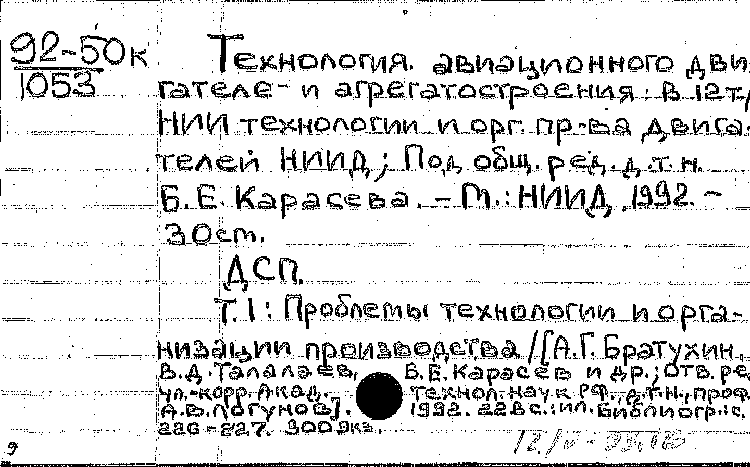 92-50к
1053
Технология авиационного дви
гателе- и агрегатостроения: В 12т/
НИИ технологии и орг. пр-ва двига-
телей НИИД; Под общ. ред. д.т.н.
Б.Е. Карасева. - М.: НИИД, 1992. -
30 см.
ДСП.
Т.1: Проблемы технологии и орга-
низации производства /[А.Г. Братухин,
В.Д. Талалаев, Б.Е. Карасев и др.; Отв. ре
чл.-корр. Акад. технол. наук РФ, д.т.н., проф
А.В. Логунов]. 1992. 228 с.: ил. Библиогр.: с.
226-227. 300 экз.
9